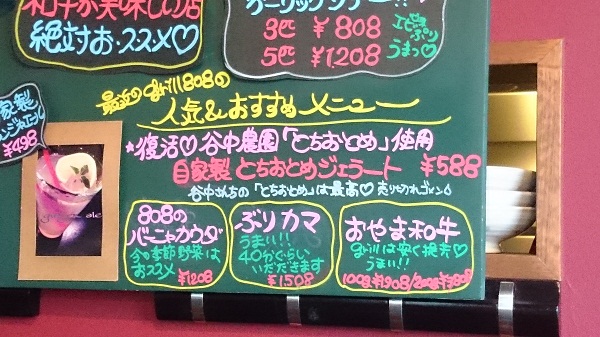 和牛が美味しい店
絶対お・ススメ♡
ガーリックシュリンプ!!
3匹 ¥808
5匹 ¥1,208
うまっ♡
最近のgrill808の
人気&おすすめメニュー
自家製
¥498
★復活♡谷中農園「とちおとめ」使用
自家製 とちおとめジェラート ¥588
谷中さんちの「とちおとめ」は最高♡売り切れゴメン
808の
バーニャカウダ
今の季節野菜は
おススメ ¥1208
ぶりカマ
うまい!!
40分ぐらい
いただきます
¥1508
おやま和牛
grillは安く提供♡
うまい!!
100g¥1,908/200g¥3,808